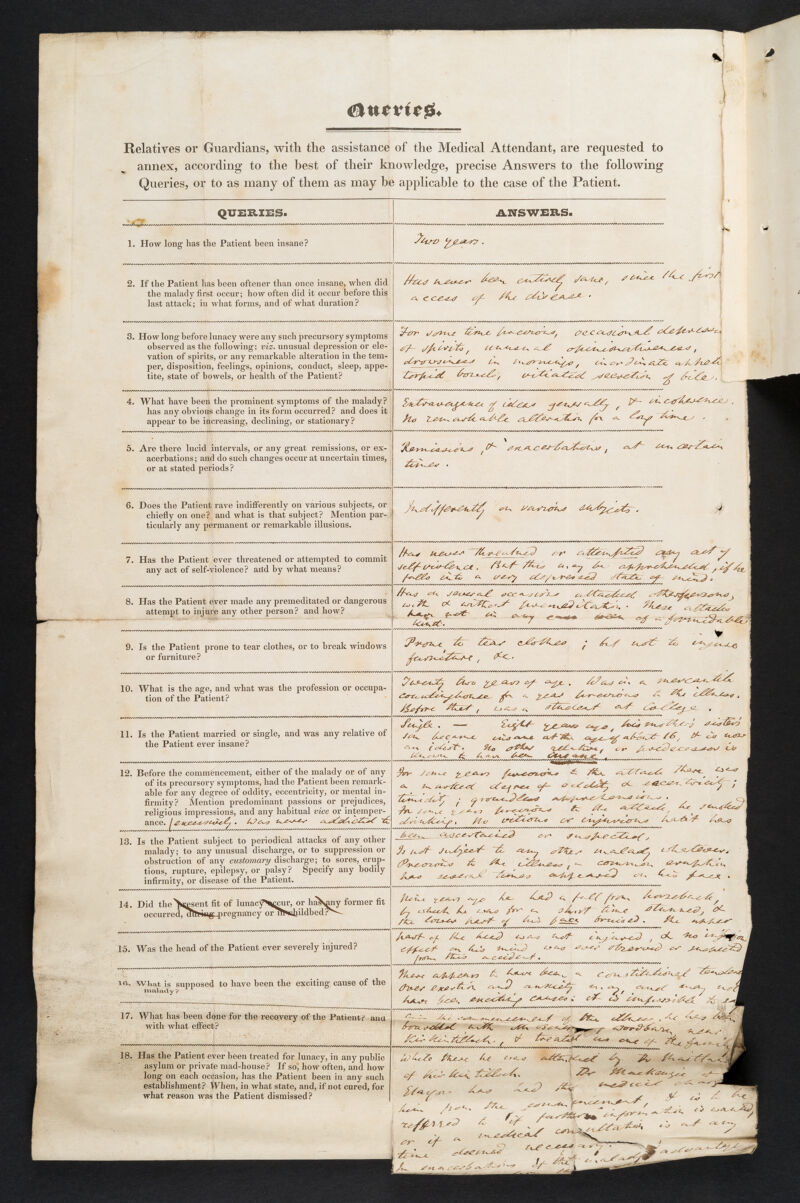 Queries.
Relatives or Guardians, with the assistance of the Medical Attendant, are requested to
annex, according to the best of their knowledge, precise Answers to the following
Queries, or to as many of them as may be applicable to the case of the Patient.
QUERIES.
ANSWERS.
1. How long has the Patient been insane?
Two years.
2. If the Patient has been oftener than once insane, when did
the malady first occur; how often did it occur before this
last attack; in what forms, and of what duration?
Has never been entirely sane, since the first
access of the disease.
3. How long before lunacy were any such precursory symptoms
observed as the following; viz. unusual depression or ele-
vation of spirits, or any remarkable alteration in the tem-
per, disposition, feelings, opinions, conduct, sleep, appe-
tite, state of bowels, or health of the Patient?
For some time previous, occasional depression
of spirits, unusual opinionativeness,
drowsiness in mornings, inordinate appetite
torpid bowels, vitiated secretion of bile.
4. What have been the prominent symptoms of the malady?
has any obvious change in its form occurred? and does it
appear to be increasing, declining, or stationary?
Extravagance of ideas generally, & incoherence.
No remarkable alteration for a long time.
5. Are there lucid intervals, or any great remissions, or ex-
acerbations; and do such changes occur at uncertain times,
or at stated periods?
Remissions, & exacerbations, at uncertain
times.
6. Does the Patient rave indifferently on various subjects, or
chiefly on one? and what is that subject? Mention par-
ticularly any permanent or remarkable illusions.
Indifferently on various subjects.
7. Has the Patient ever threatened or attempted to commit
any act of self-violence? and by what means?
Has never threatened or attempted any act of
self violence. But this may be apprehended, if he
falls into a very depressed state of mind.
8. Has the Patient ever made any premeditated or dangerous
attempt to injure any other person? and how?
Has on several occasions attacked other persons,
with & without premeditation. These attacks
have not in any been of a formidable
kind.
9. Is the Patient prone to tear clothes, or to break windows
or furniture?
Prone to tear clothes; but not to injure
furniture, &c.
10. What is the age, and what was the profession or occupa-
tion of the Patient?
Twenty two years of age. Was in a mercantile
countinghouse for a year previous to his illness.
Before that, was a student at College.
11. Is the Patient married or single, and was any relative of
the Patient ever insane?
Single. — Eight years ago, his mother's sister's
son became insane at the age of about 16, & is now
an idiot. No other relation, or predecessor is
known to have been insane.
12. Before the commencement, either of the malady or of any
of its precursory symptoms, had the Patient been remark-
able for any degree of oddity, eccentricity, or mental in-
firmity? Mention predominant passions or prejudices,
religious impressions, and any habitual vice or intemper-
ance.
For some years previous to the attack there was
a marked degree of oddity & eccentricity;
timidity; groundless apprehensions.
For some years previous to the attack, he smoked
excessively. Was never addicted to
drinking. No vitious or injurious habit has
been ascertained or suspected.
13. Is the Patient subject to periodical attacks of any other
malady; to any unusual discharge, or to suppression or
obstruction of any customary discharge; to sores, erup-
tions, rupture, epilepsy, or palsy? Specify any bodily
infirmity, or disease of the Patient.
Is not subject to any other malady whatever.
Previous to the illness, a common eruption
has several times appeared on his face.
14. Did the present fit of lunacy occur, or has any former fit
occurred, during pregnancy or in childbed?
Nine years ago he had a fall from horseback,
by which he was for a short time stunned, &
the lower part of his face bruised. The upper
15. Was the head of the Patient ever severely injured?
part of the head was not injured, & no injurious
effect on his mind was ever observed or suspected
from this accident.
16. What is supposed to have been the exciting cause of the
malady?
There appears to have been a constitutional tendency
Over exertion and anxiety may, and may not
have been exciting causes. It is impossible to
17. What has been done for the recovery of the Patient? and
with what effect?
the commencement of the illness, he has been
boarded with near
Kirkintilloch, & treated as one of the family
18. Has the Patient ever been treated for lunacy, in any public
asylum or private mad-house? If so, how often, and how
long on each occasion, has the Patient been in any such
establishment? When, in what state, and, if not cured, for
what reason was the Patient dismissed?
While there he was attended by Dr
of Kirkintilloch. Dr Mackenzie of
Glasgow has had the medical charge
him from the commencement, & is to be
referred to if further information is wanted,
or if a medical consultation is at any
time deemed necessary.